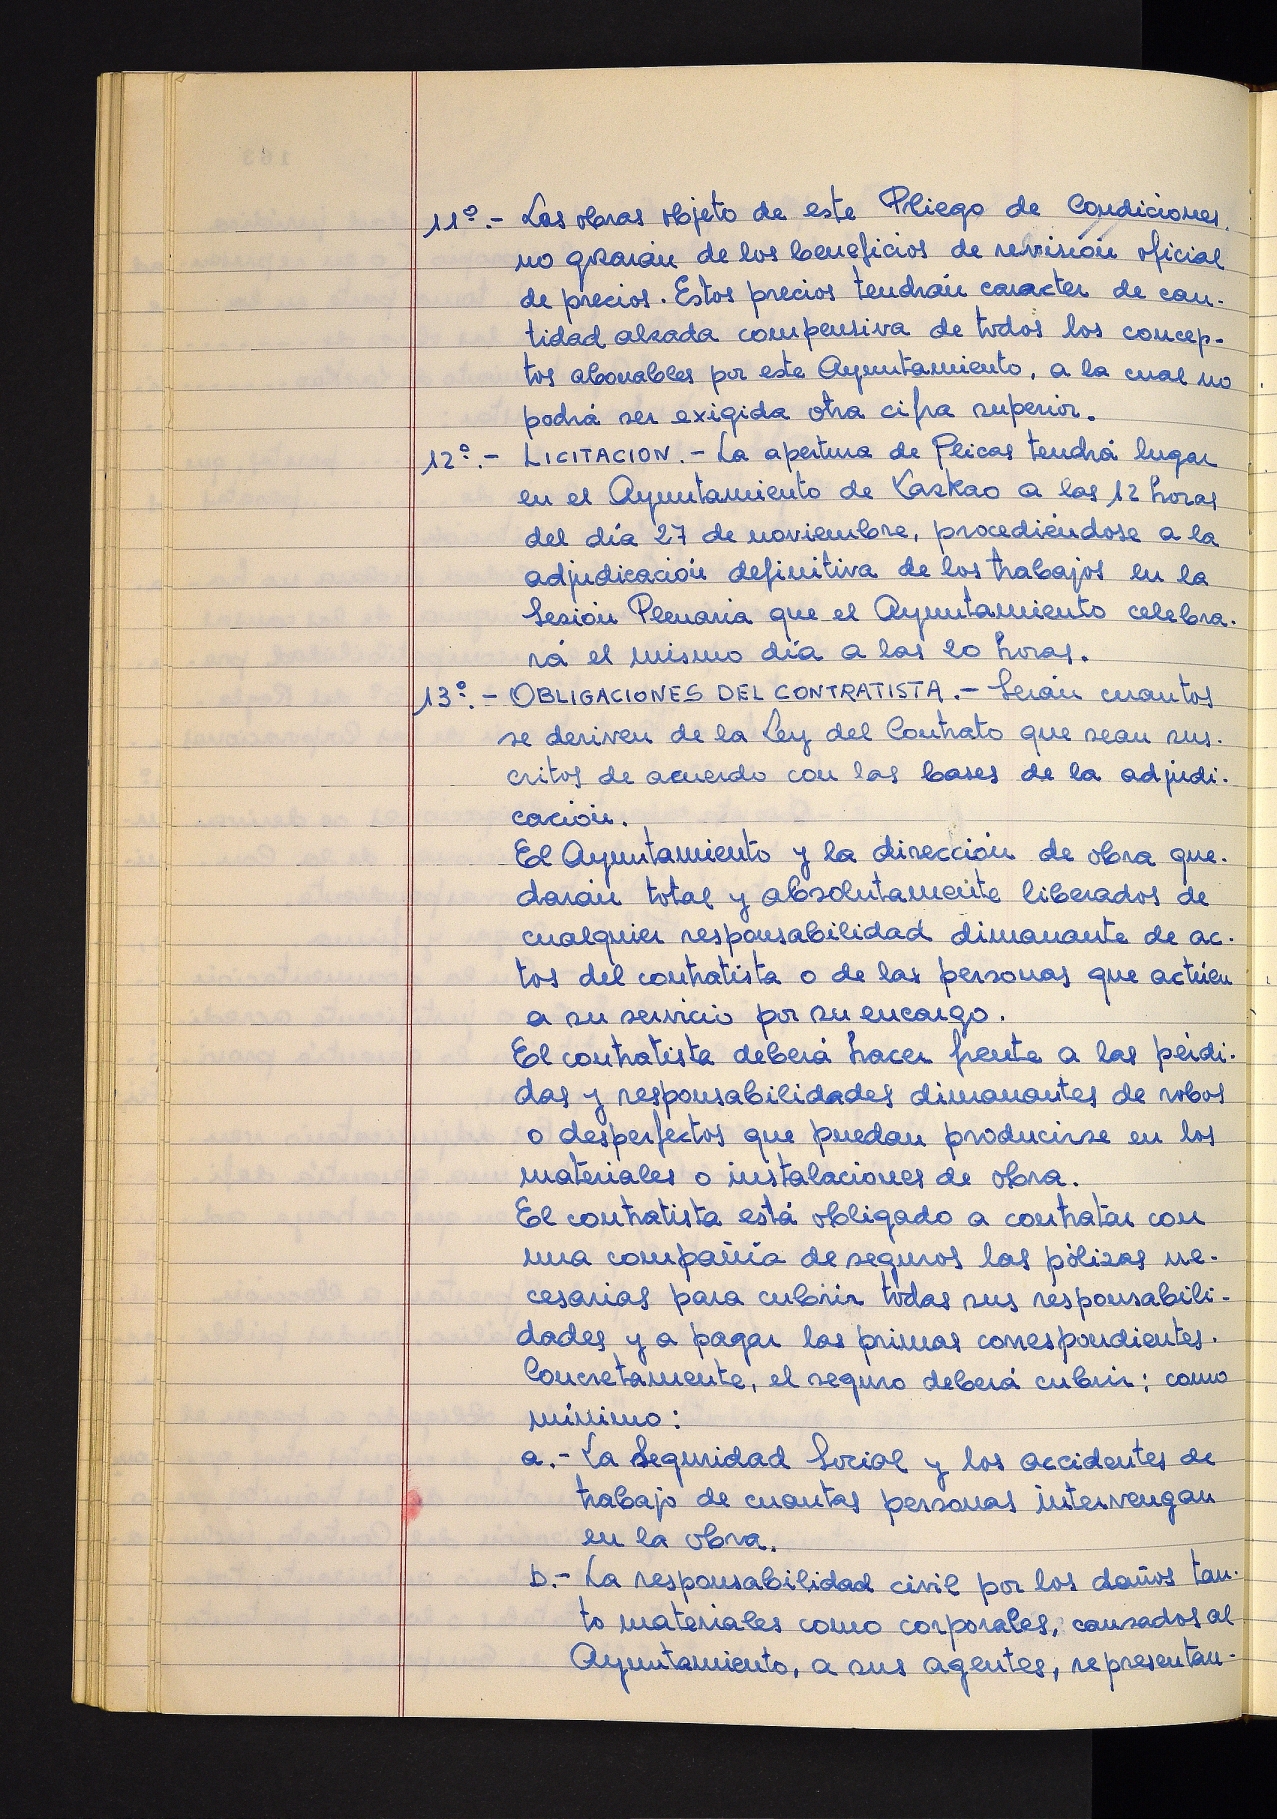 11º.- Las obras objeto de este Pliego de Condiciones.
no gozarán de los beneficios de revisión oficial
de precios. Estos precios tendrán caracter de can-
tidad alzada compensiva de todos los concep-
tos abonables por este Ayuntamiento, a la cual no
podrá ser exigida otra cifra superior.
12º.- LICITACION.- La apertura de Plicas tendrá lugar
en el Ayuntamiento de Lazkao a las 12 horas
del día 27 de noviembre, procediéndose a la
adjudicación definitiva de los trabajos en la
Sesión Plenaria que el Ayuntamiento celebra-
rá el mismo día a las 20 horas.
13º.- OBLIGACIONES DEL CONTRATISTA.- Serán cuantos
se deriven de la Ley del Contrato que sean sus-
critos de acuerdo con las bases de la adjudi-
cación.
El Ayuntamiento y la dirección de obra que-
darán total y absolutamente liberados de
cualquier responsabilidad dimanante de ac-
tos del contratista o de las personas que actúen
a su servicio por su encargo.
El contratista deberá hacer frente a las pérdi-
das y responsabilidades dimanantes de robos
o desperfectos que puedan producirse en los
materiales o instalaciones de obra.
El contratista está obligado a contratar con
una compañía de seguros las pólizas ne-
cesarias para cubrir todas sus responsabili-
dades y a pagar las primas correspondientes.
Concretamente, el seguro deberá cubrir; como
mínimo:
a.- La Seguridad Social y los accidentes de
trabajo de cuantas personas intervengan
en la obra.
b.- La responsabilidad civil por los daños tan-
to materiales como corporales, causados al
Ayuntamiento, a sus agentes, representan-